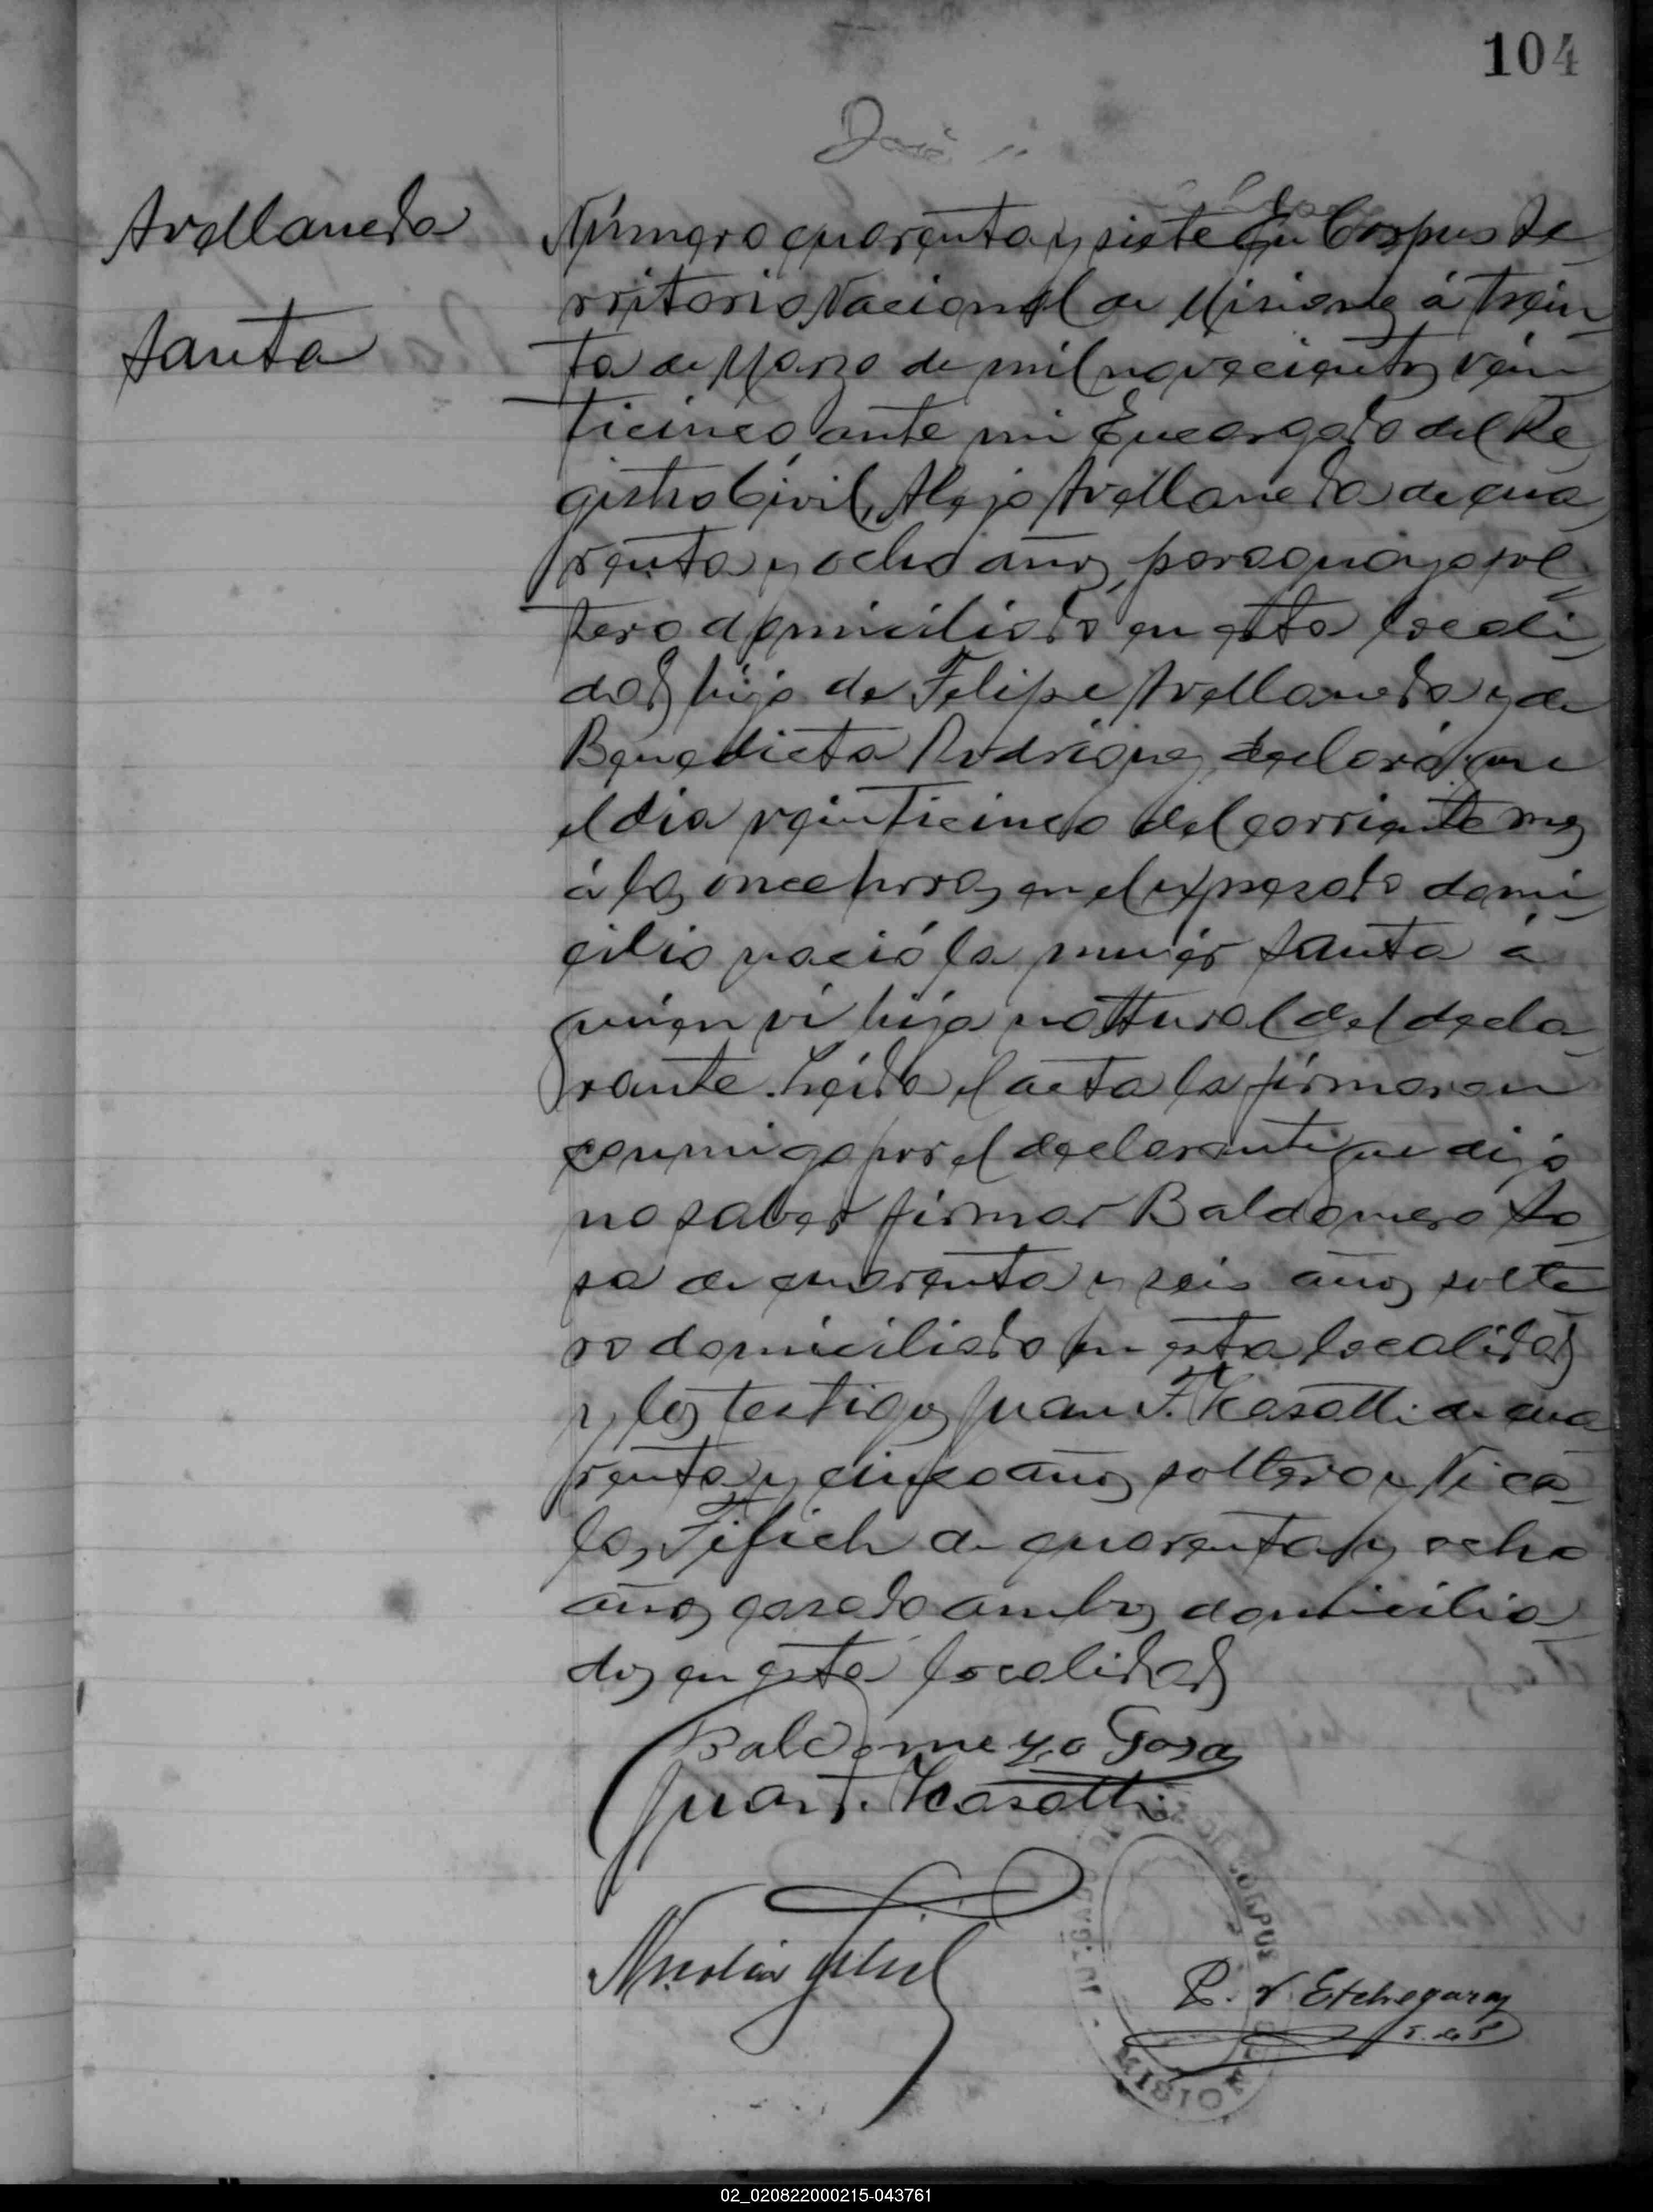 104
Avellaneda
Santa
Número cuarenta y siete En Corpus Te
rritorio Nacional de Misiones á trein
ta de Marzo de mil novecientos vein
ticinco, ante mi Encargado del Re
gistro Civil, Alejo Avellaneda de cua
renta y ocho años, paraguayo sol
tero domiciliado en esta locali
dad hijo de Felipe Avellaneda y de
Benedicta Rodriguez, declaró: que
el dia veinticinco del corriente mes
á las once horas en el expresado domi
cilio nació la mujer Santa á
quien vi hija nattural del decla
rante. Leida el acta la firmaron
conmigo por el declarante que dijó
no saber firmar Baldomero So
sa de cuarenta y seis años solte
ro domiciliado en esta localidad
y los testigos Juan F. Kasatti de cua
renta y cinco años soltero y Nico
las Fifich de cuarenta y ocho
años casado ambos domicilia
dos en esta localidad
Baldomero Sosa
Juan F. Kasatti
Nicolás
P. V. Etchegaray
CORPUS
MISION
02_020822000215-043761